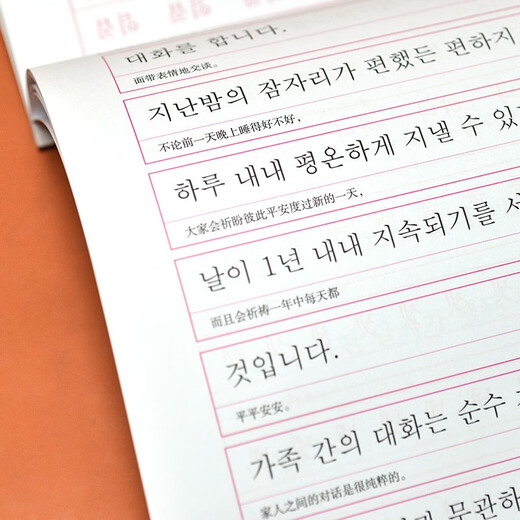 대화를 합니다.
面带表情地交谈。
지난밤의 잠자리가 편했든 편하지
不论前一天晚上睡得好不好，
하루 내내 평온하게 지낼 수 있
大家会祈盼彼此平安度过新的一天，
날이 1년 내내 지속되기를 서
而且会祈祷一年中每天都
것입니다.
平平安安。
가족 간의 대화는 순수
家人之间的对话是很纯粹的。
무관하